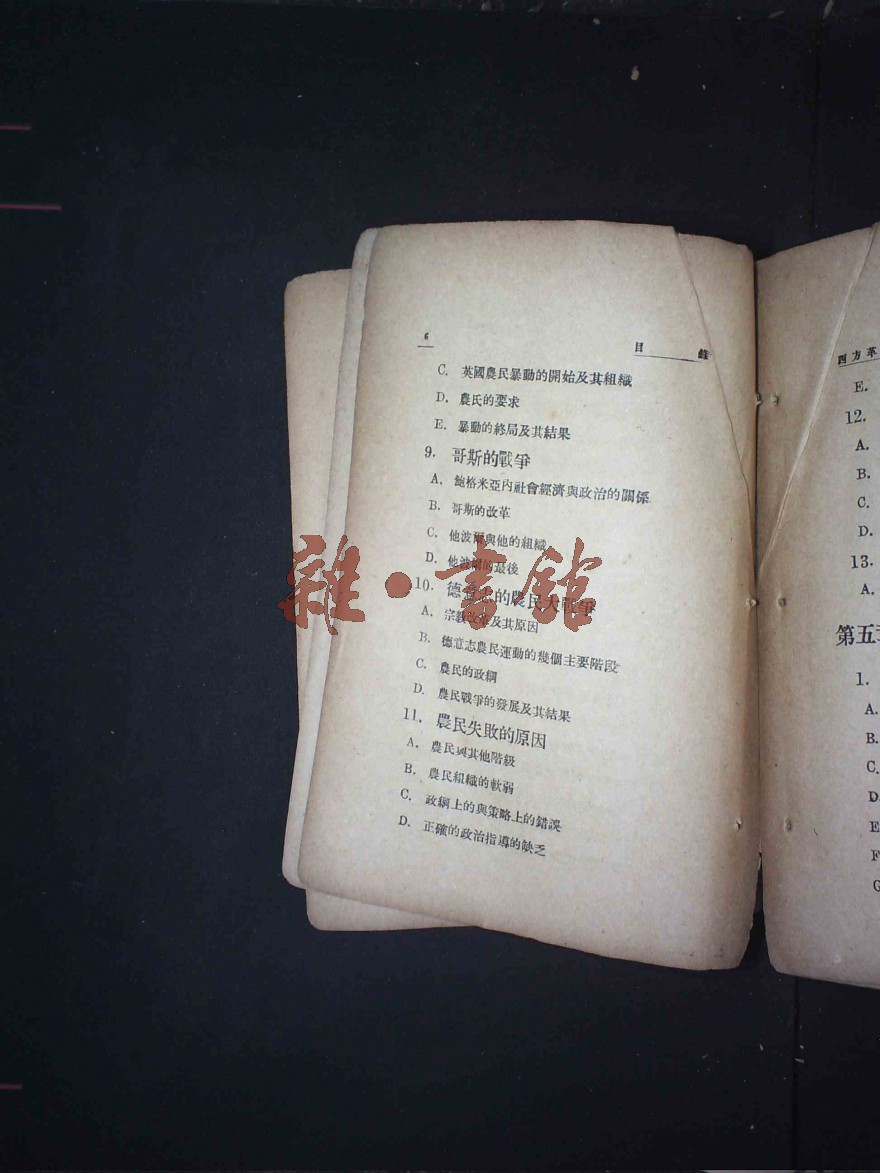 6
目 錄
C. 英國農民暴動的開始及其組織
D. 農民的要求
E. 暴動的終局及其結果
9. 哥斯的戰爭
A. 鮑格米亞內社會經濟與政治的關係
B. 哥斯的改革
C. 他波爾與他的組織
D. 他波爾的最後
10. 德意志的農民大戰爭
A. 宗教改革及其原因
B. 德意志農民運動的幾個主要階段
C. 農民的政綱
D. 農民戰爭的發展及其結果
11. 農民失敗的原因
A. 農民與其他階級
B. 農民組織的軟弱
C. 政綱上的與策略上的錯誤
D. 正確的政治指導的缺乏
雜·書館
四方革
E.
12.
A.
B.
C.
D.
13.
A.
第五
1.
A.
B.
C.
D.
E
F
G